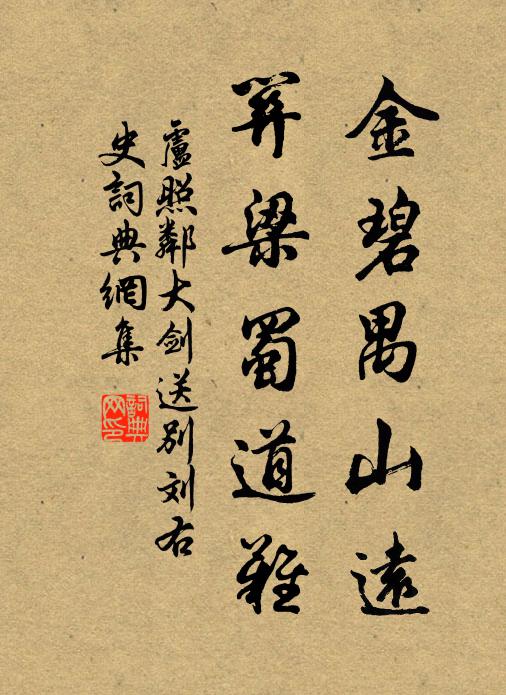 金碧禺山遠
關梁蜀道難
盧照鄰大剑送别刘右
史詞典網集
詞典
网印